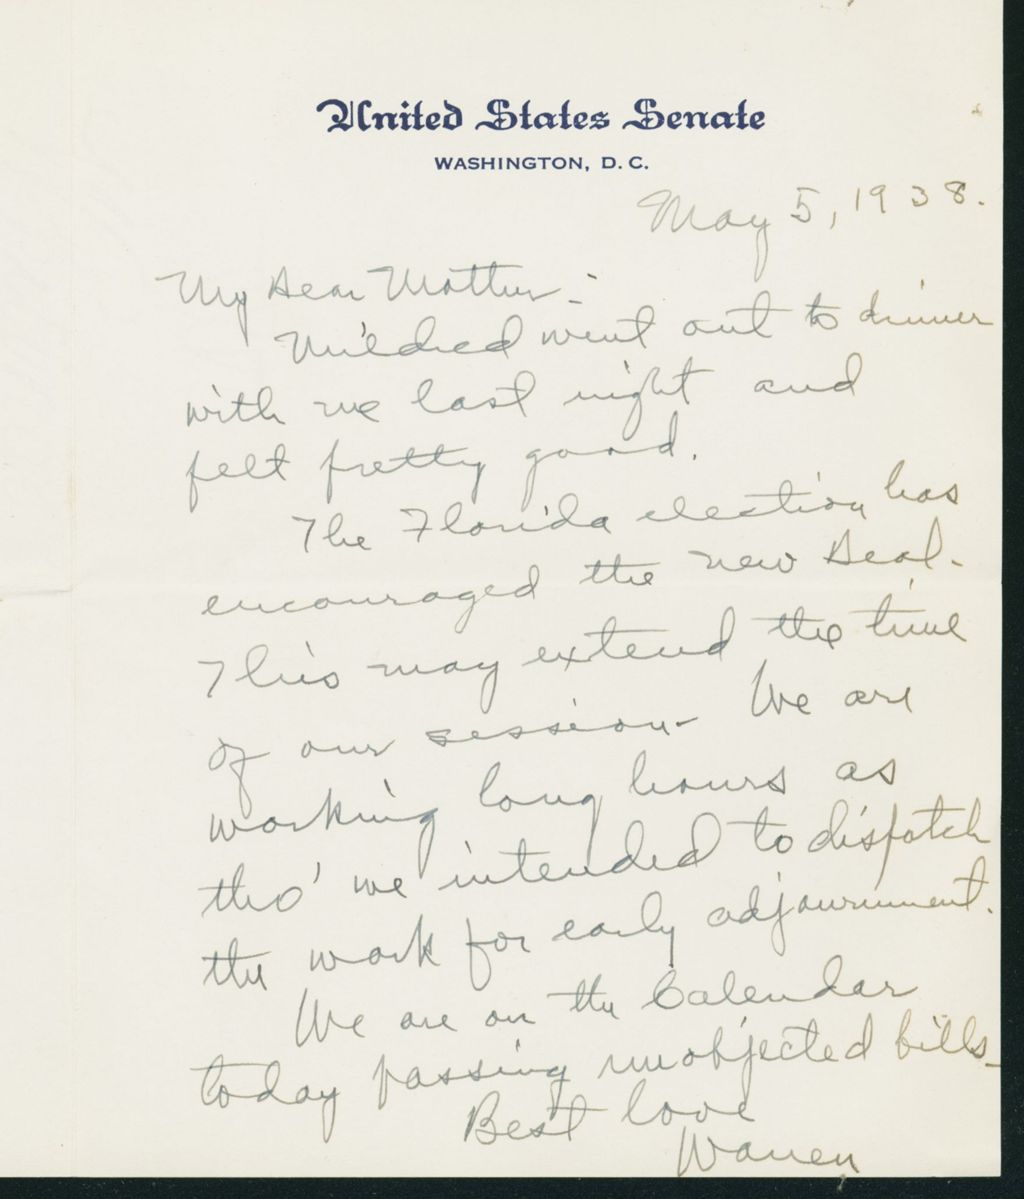 United States Senate
WASHINGTON, D. C.
May 5, 1938.
My Dear Mother:-
Mildred went out to dinner
with me last night and
felt pretty good.
The Florida election has
encouraged the new Deal.
This may extend the time
of our session. We are
working long hours as
tho' we intended to dispatch
the work for early adjournment.
We are on the Calendar
today passing unobjected bills.
Best love
Warren